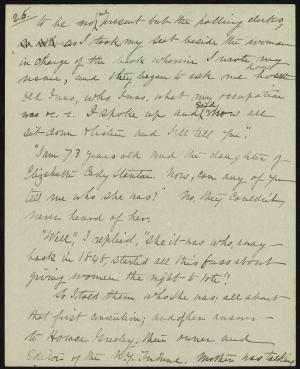 26.
to be no one present but the polling clerks,
so as I took my seat beside the woman
in charge of the book wherein I wrote my
name, and they began to ask me how
old I was, who I was, what my occupation
was etc. I spoke up and said "Now all
sit down & listen and I'll tell you".
"I am 73 years old and the daughter of
Elizabeth Cady Stanton. Now, can any of you
tell me who she was?" No, they couldn't,
never heard of her.
"Well," I replied, "she it was who, away
back in 1848, started all this fuss about
giving women the right to vote".
So I told them who she was, all about
that first convention; and of her answer
to Horace Greeley, then owner and
Editor of the N.Y. Tribune. Mother was talking